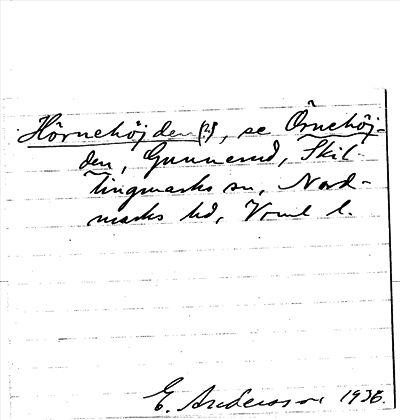 Hörnehöjden (?), se Örnehöj-
den, Gunnerud, Skil-
lingmarks sn, Nord-
marks hd, Vrml l.
E. Andersson 1936.